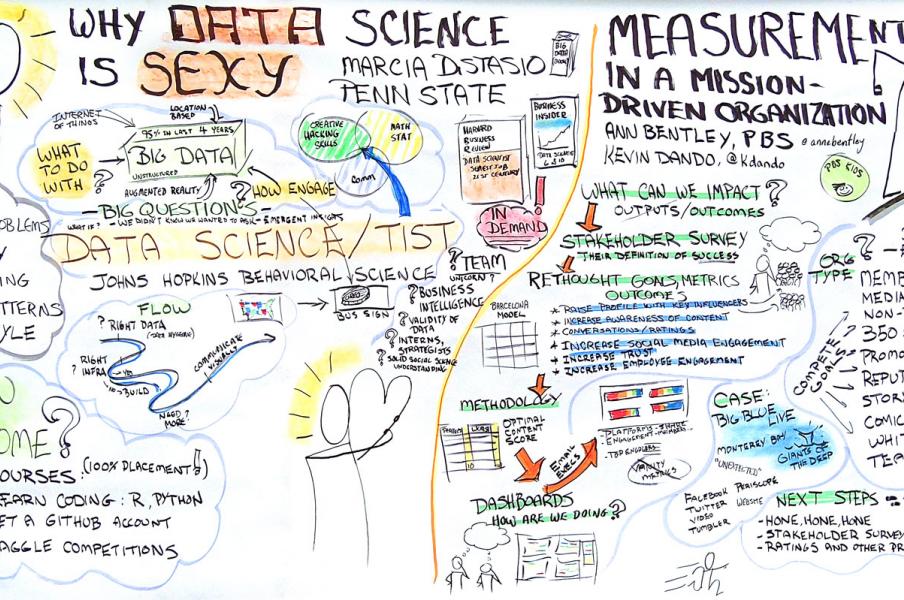 WHY DATA SCIENCE
IS SEXY
MARCIA DiSTASIO
PENN STATE
BIG DATA
INTERNET
OF THINGS
LOCATION
BASED
95% IN LAST 4 YEARS
BIG DATA
UNSTRUCTURED
WHAT
TO DO
WITH ?
AUGMENTED REALITY
? HOW ENGAGE
CREATIVE
HACKING
SKILLS
MATH
STAT
COMM
HARVARD
BUSINESS
REVIEW
DATA SCIENTIST
SEXIEST JOB
21ST CENTURY
BUSINESS
INSIDER
IN
DEMAND !
- BIG QUESTIONS
WHAT IF? - WE DIDN'T KNOW WE WANTED TO ASK - EMERGENT INSIGHTS
DATA SCIENCE/TIST
JOHNS HOPKINS BEHAVIORAL SCIENCE
FLOW
? RIGHT DATA
(DATA HYGIENE)
RIGHT
? INFRA
BUILD
NEED
MORE?
COMMUNICATE
VISUALLY
BUS SIGN
? TEAM
UNICORN?
? BUSINESS
INTELLIGENCE
? VALIDITY OF
DATA
? INTERNS,
STRATEGISTS
? SOLID SOCIAL SCIENCE
UNDERSTANDING
ROBLEMS
ING
TTERNS
YLE
OME?
COURSES: (100% PLACEMENT!)
EARN CODING: R, PYTHON
ET A GITHUB ACCOUNT
AGGLE COMPETITIONS
MEASUREMENT
IN A MISSION-
DRIVEN ORGANIZATION
ANN BENTLEY, PBS @annebentley
KEVIN DANDO, @kdando
PBS KIDS
WHAT CAN WE IMPACT ?
OUTPUTS/OUTCOMES
STAKEHOLDER SURVEY
THEIR DEFINITION OF SUCCESS
RETHOUGHT GOALS, METRICS
OUTCOMES
* RAISE PROFILE WITH KEY INFLUENCERS
* INCREASE AWARENESS OF CONTENT
* CONVERSATIONS/RATINGS
* INCREASE SOCIAL MEDIA ENGAGEMENT
* INCREASE TRUST
* INCREASE EMPLOYEE ENGAGEMENT
BARCELONA
MODEL
METHODOLOGY
OPTIMAL
CONTENT
SCORE
10
EMAIL
EXECS
PLATFORMS - SHARE
- ENGAGEMENT - MEMBERS
- TOP ENGAGERS
VANITY
METRICS
DASHBOARDS
HOW ARE WE DOING?
ORG ?
TYPE
COMPETE
GOALS
MEMB
MEDIA
NON-
350
PROMO
REPUT
STOR
COMIC
WHIT
TEA
CASE:
BIG BLUE LIVE
MONTEREY BAY
"UNEXPECTED"
GIANTS OF
THE DEEP
FACEBOOK
TWITTER
VIDEO
TUMBLER
PERISCOPE
WEBSITE
NEXT STEPS
- HONE, HONE, HONE
- STAKEHOLDER SURVEY
- RATINGS AND OTHER PR